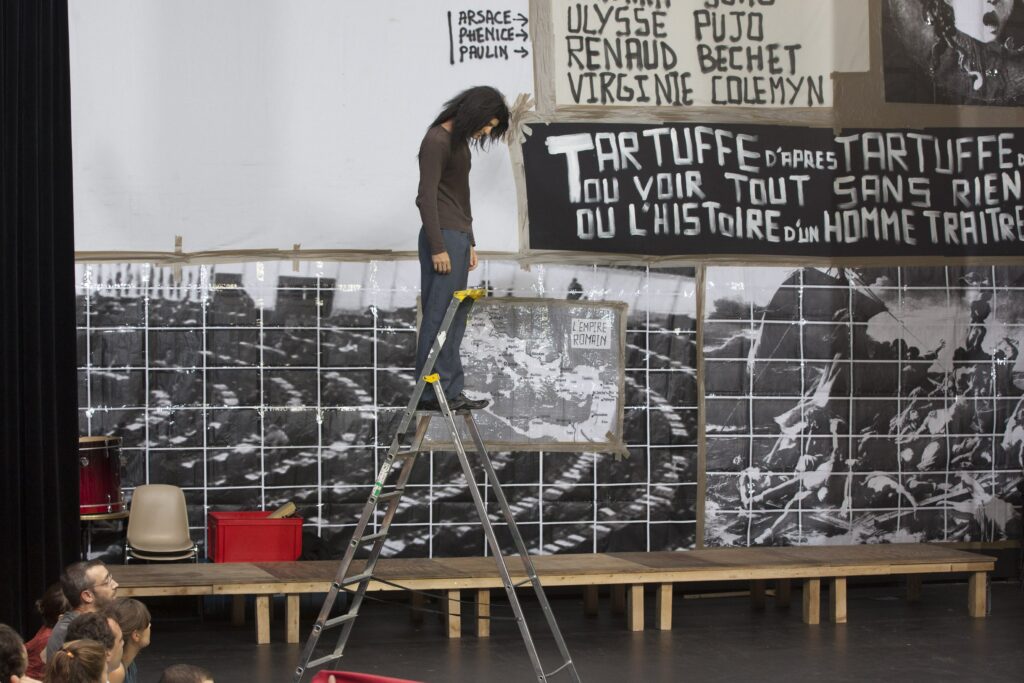 ARSACE→
PHENICE→
PAULIN →
ULYSSE PUJO
RENAUD BECHET
VIRGINIE COLEMYN
TARTUFFE D'APRES TARTUFFE
OU VOIR TOUT SANS RIEN
OU L'HISTOIRE D'UN HOMME TRAITRE
L'EMPIRE
ROMAIN